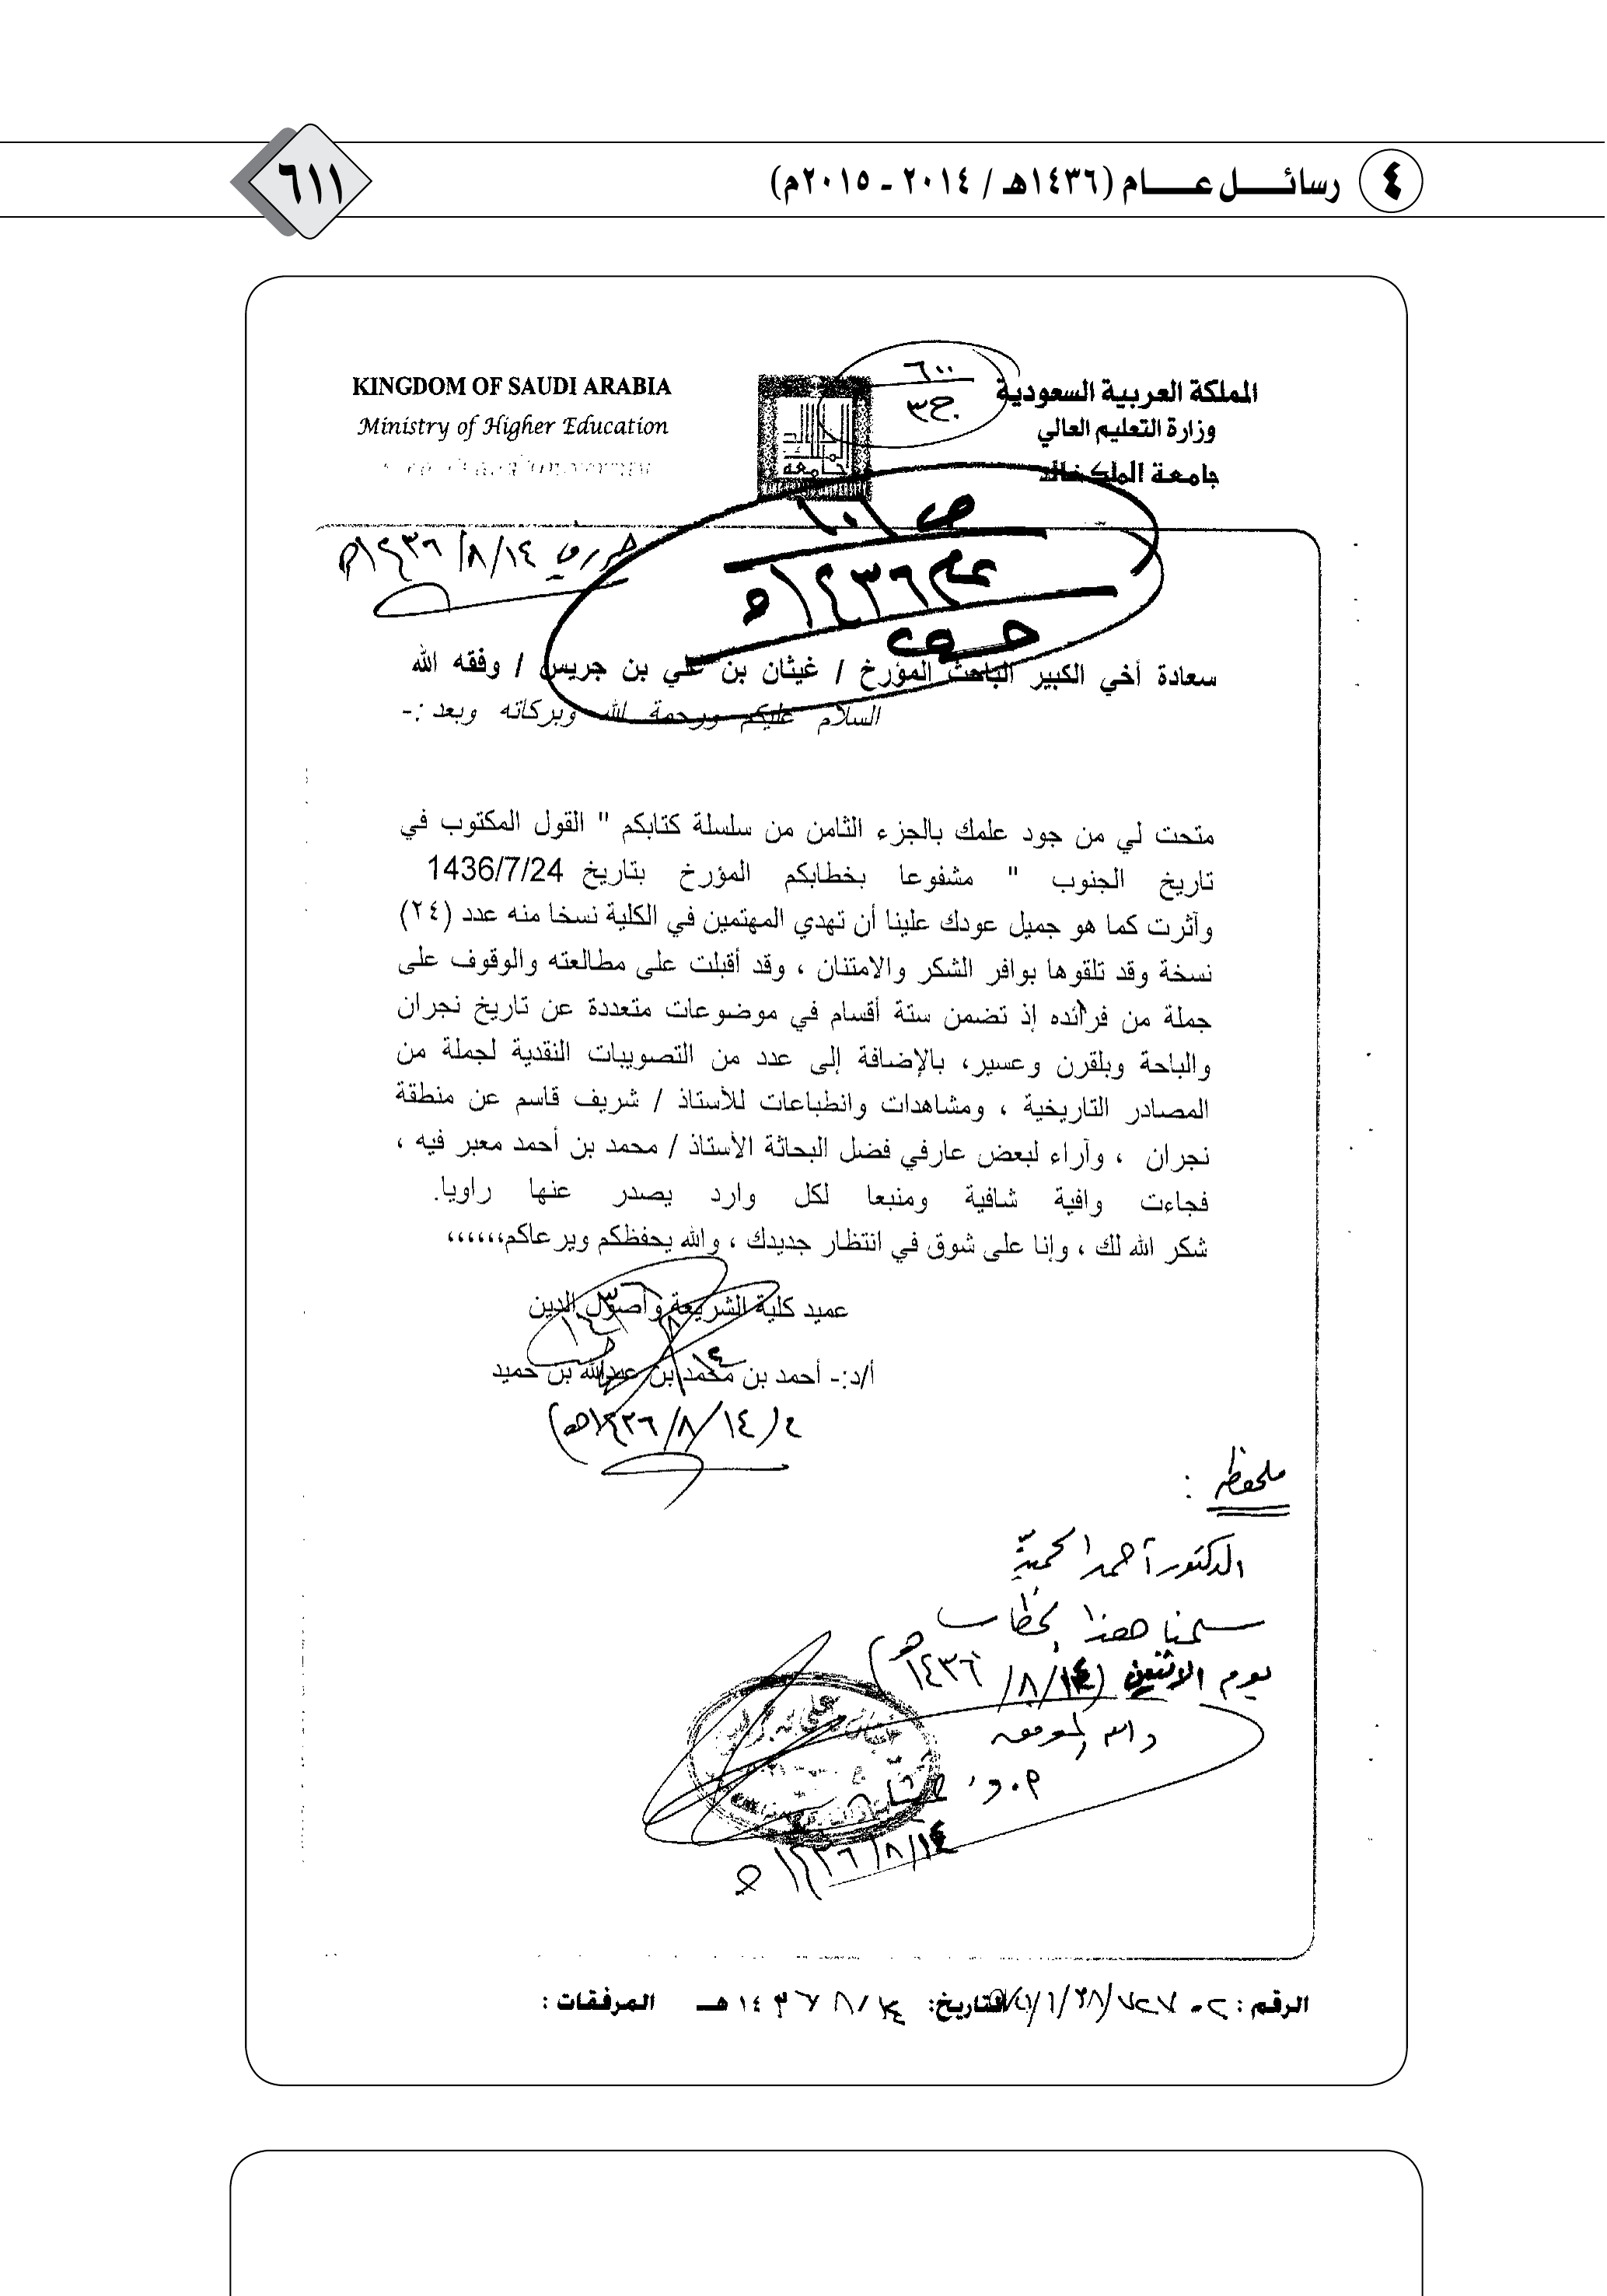 ٤ رسائــــل عــــــام (١٤٣٦هـ / ٢٠١٤ - ٢٠١٥م)
٦١١
المملكة العربية السعودية
وزارة التعليم العالي
جامعة الملك خالد
KINGDOM OF SAUDI ARABIA
Ministry of Higher Education
٦٠٠
ج٣
عام ١٤٣٦هـ
١٤٣٦/٨/١٤هـ
سعادة أخي الكبير الباحث المؤرخ / غيثان بن علي بن جريس / وفقه الله
السلام عليكم ورحمة الله وبركاته وبعد :-
متحت لي من جود علمك بالجزء الثامن من سلسلة كتابكم " القول المكتوب في
تاريخ الجنوب " مشفوعا بخطابكم المؤرخ بتاريخ 1436/7/24
وآثرت كما هو جميل عودك علينا أن تهدي المهتمين في الكلية نسخا منه عدد (٢٤)
نسخة وقد تلقوها بوافر الشكر والامتنان ، وقد أقبلت على مطالعته والوقوف على
جملة من فرائده إذ تضمن ستة أقسام في موضوعات متعددة عن تاريخ نجران
والباحة وبلقرن وعسير، بالإضافة إلى عدد من التصويبات النقدية لجملة من
المصادر التاريخية ، ومشاهدات وانطباعات للأستاذ / شريف قاسم عن منطقة
نجران ، وآراء لبعض عارفي فضل البحاثة الأستاذ / محمد بن أحمد معبر فيه ،
فجاءت وافية شافية ومنبعا لكل وارد يصدر عنها راويا.
شكر الله لك ، وإنا على شوق في انتظار جديدك ، والله يحفظكم ويرعاكم،،،،،،
عميد كلية الشريعة وأصول الدين
أ/د:- أحمد بن محمد بن عبدالله بن حميد
(١٤٣٦/٨/١٤هـ)
ملحوظة :
الدكتور أحمد الحميد
سلمنا هذا الخطاب
يوم الاثنين (١٤٣٦/٨/١٤هـ)
والله الموفق
١٤٣٦/٨/١٤هـ
الرقم : التاريخ: ١٤٣٦/٨/١٤هـ المرفقات :